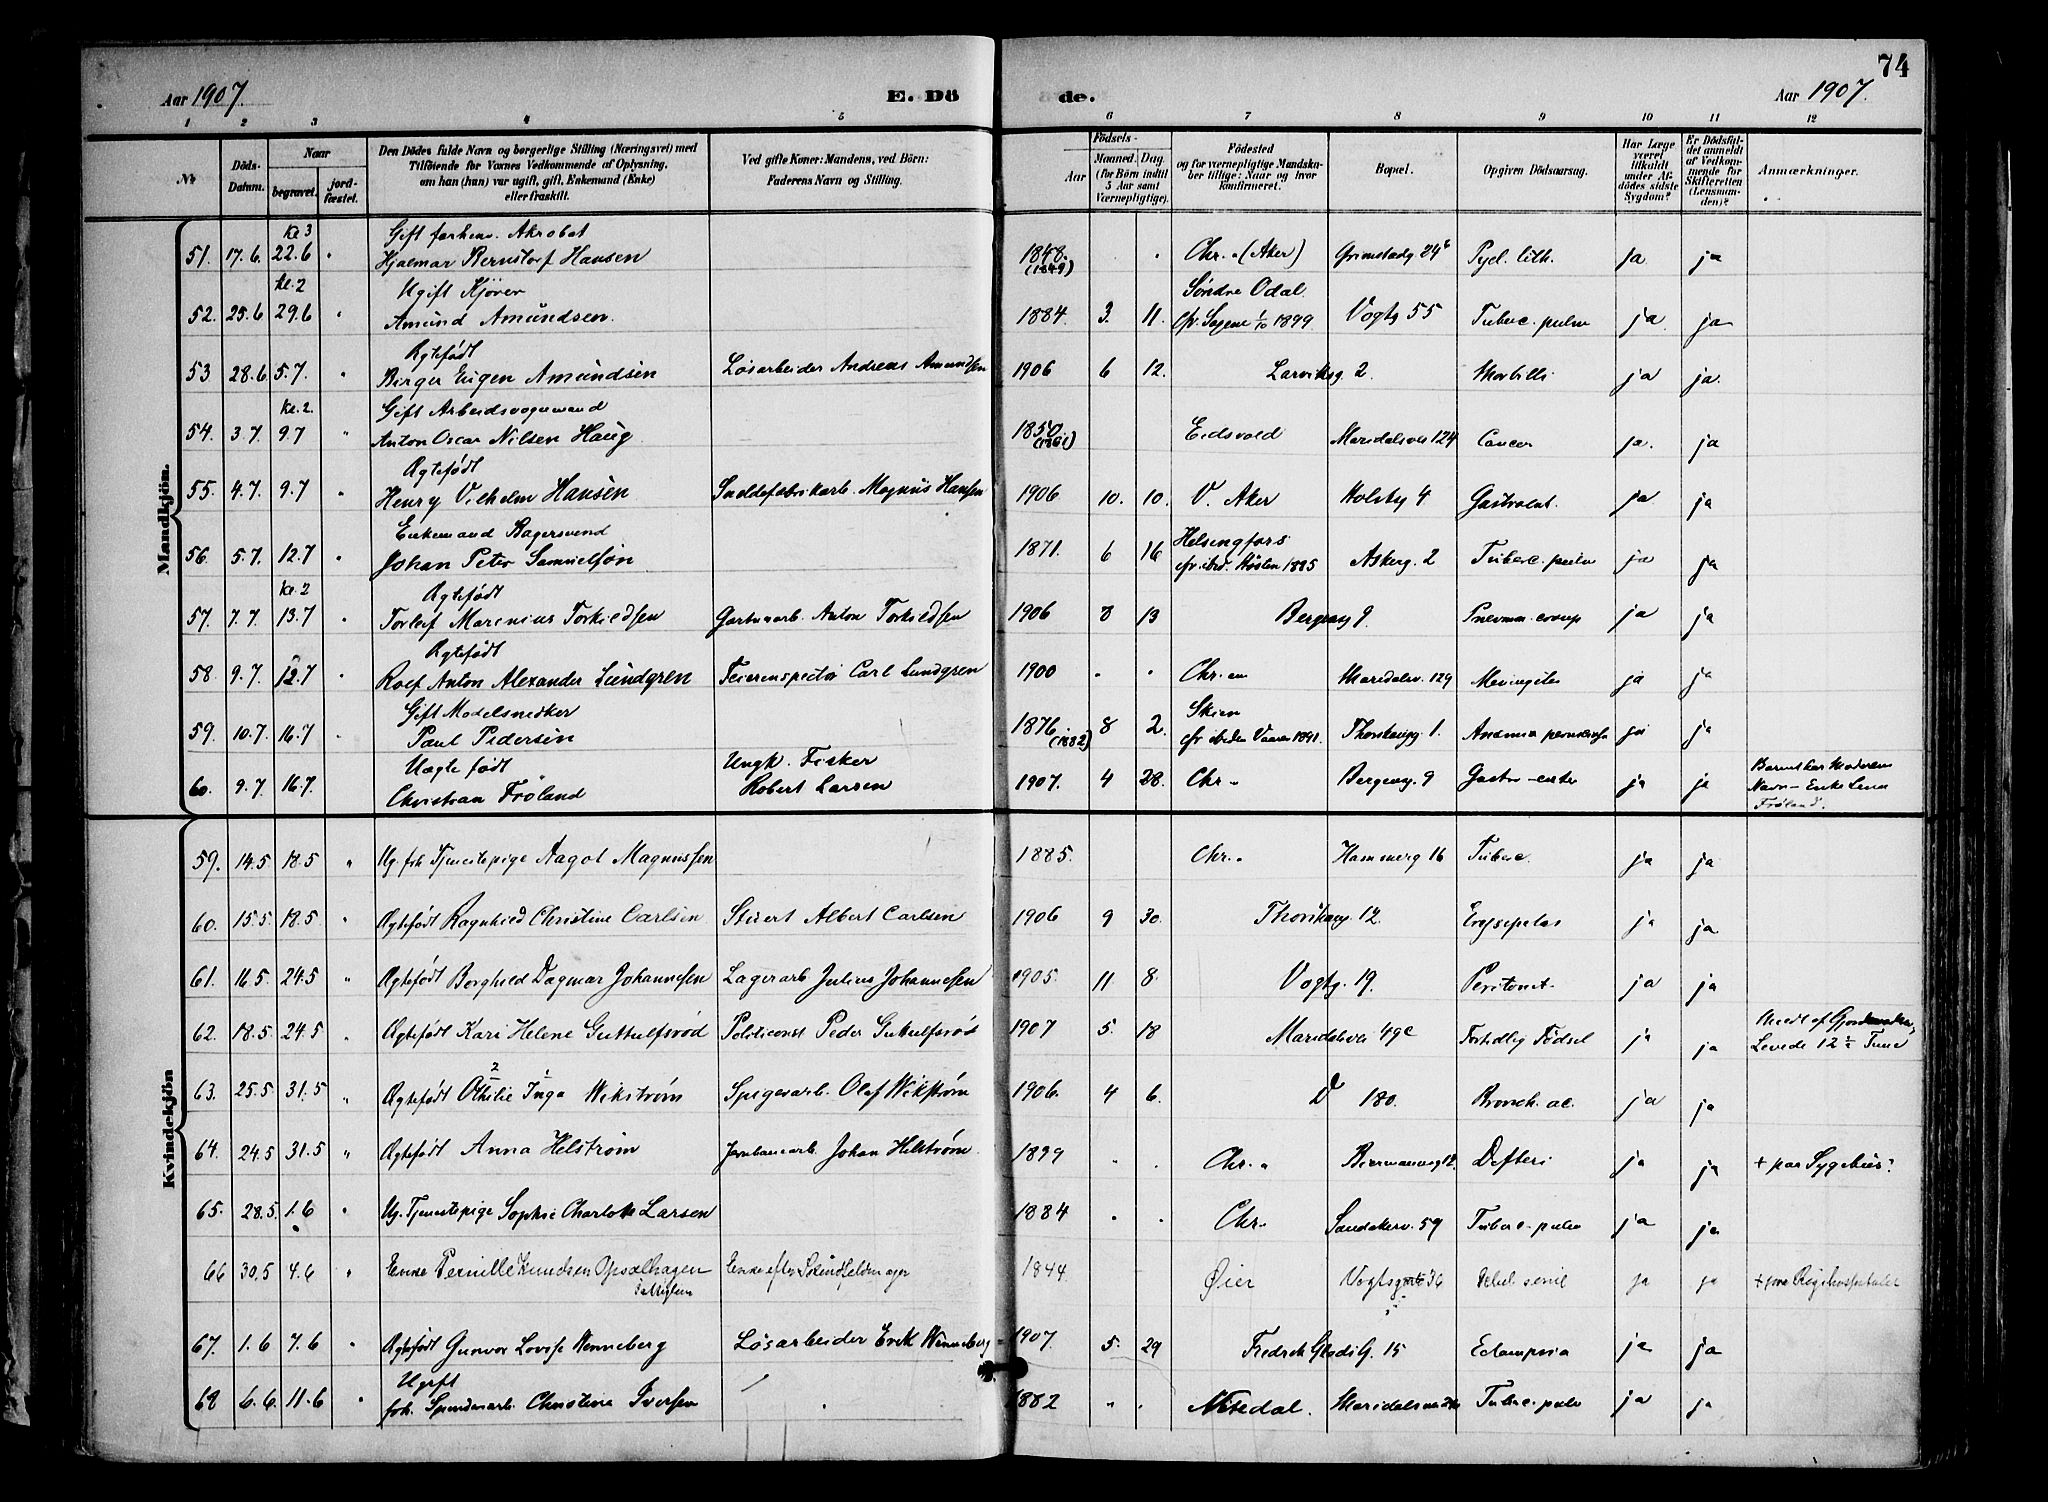 74
Aar 1907.
E. Dö de.
Aar 1907.
1 2 3 4 5 6 7 8 9 10 11 12
Nr.
Döds-Datum.
Naar
begravet.
jord-fæstet.
Den Dödes fulde Navn og borgerlige Stilling (Næringsvei) med
Tilföiende for Voxnes Vedkommende af Oplysning,
om han (hun) var ugift, gift, Enkemand (Enke)
eller fraskilt.
Ved gifte Koner: Mandens, ved Börn:
Faderens Navn og Stilling.
Födsels-
Aar
Maaned. Dag.
(for Börn indtil
5 Aar samt
Værnepligtige).
Födested
og for værnepligtige Mandska-
ber tillige: Naar og hvor
konfirmeret.
Bopæl.
Opgiven Dödsaarsag.
Har Læge
været
tilkaldt
under Af-
dödes sidste
Sygdom?
Er Dödsfal-
det anmeldt
af Vedkom-
mende for
Skifteretten
(Lensman-
den)?
Anmærkninger.
Mandkjön.
Kl 3 Gift forhenv. Akrobat
51. 17.6. 22.6 " Hjalmar Bernstorf Hansen 1848. (1849) " Chr.a (Aker) Grimstadg. 24b Pyel. lith. ja ja
Kl. 2 Ugift Kjører Søndre Odal.
52. 25.6 29.6 " Amund Amundsen. 1884. 3. 11. Cfr. Sagene 1/10 1899 Vogtg 55 Tuberc. pulm ja ja
Ægtefødt
53. 28.6. 5.7. " Birger Eugen Amundsen Løsarbeider Andreas Amundsen 1906 6 12. Larviksg. 2 Morbilli ja ja.
Kl. 2. Gift Arbeidsvognmand
54. 3.7. 9.7 " Anton Oscar Nilsen Haug 1850. (1861) Eidsvold Maridalsvei 124 Cancer ja. ja
Ægtefødt
55. 4.7. 9.7 " Henry Vilhelm Hansen Sæbefabrikarb. Magnus Hansen 1906 10. 10. V. Aker Holstg 4 ja ja
Enkemand Bagersvend Helsingfors
56. 5.7. 12.7 " Johan Peter Samuelson 1871. 6 16 Høsten 1885 Askerg. 2 Tuberc. pulm ja ja
Kl. 2 Ægtefødt
57. 7.7. 13.7 " Torleif Marenius Torkildsen Anton Torkildsen 1906 8 13 Bergensg 9. Pneumon. croup ja ja
Ægtefødt
58. 9.7. 12.7 " Rolf Anton Alexander Lundgren Feierinspectør Carl Lundgren 1900 " " Chr.a Maridalsv. 129 Meningites ja ja
Gift Modelsnedker Skien
59. 10.7. 16.7. Paul Pedersen 1876 (1882) 8 2. cfr ibiden Vaaren 1891. Thorshaugg. 1. ja ja.
Uægte født Ungk. Fisker
60. 9.7. 16.7. Christian Frøland Robert Larsen 1907. 4 28. Chr.a Bergensg. 9 Gastro-enter ja ja Barnet har Moderens
Navn - Enke Lena
Frøland.
Kvindekjön
59. 14.5 18.5 " Ug. frh Tjenestepige Aagot Magnussen 1885. Chr.a Hammerg 16 Tuberc. ja ja
60. 15.5. 18.5 " Ægtefødt Ragnhild Christine Carlsen Stuert Albert Carlsen 1906 9 30. Thorshaug. 12. Erysipelas ja ja
61. 16.5. 24.5 " Ægtefødt Borghild Dagmar Johannesen Lagerarb Julius Johannesen 1905. 11 8. Vogtg. 19. Peritonit. ja ja
62. 18.5. 24.5 " Ægtefødt Kari Helene Guttulfsrød Politiconst Peder Gutulfsrød 1907 5. 18 Maridalsvei 49c Fortidlig Fødsel ja ja Meldt af
Levede 12 ½ Time
63. 25.5. 31.5 " Ægtefødt Othilie (2) Inga (1) Wikstrøm Spigerarb. Olaf Wikstrøm 1906. 4 6. D 180. Bronch. ac. ja ja
64. 24.5 31.5 " Ægtefødt Anna Helstrøm Jernbanearb Johan Helstrøm. 1899 " " Chr.a Biermannsg 12. Defteri ja ja + paa Sygehus.
65. 28.5. 1.6 " Ug. Tjenestepige Sophie Charlotte Larsen 1884 " " Chr. Sandakerv. 59 Tuberc. pulm ja ja
66 30.5 4.6 " Enke Pernille Knudsen Opsalhagen Enke efter 1844 Øier Vogtsgate 36 Debil. senil ja ja + paa Rigshospitalet
Fattiglem
67. 1.6 7.6 " Ægtefødt Gunvor Lovise Wenneberg Løsarbeider Erik Wenneberg 1907. 5. 29 Fredrik Glads G. 15 Eclampsia ja ja
Ugift
68 6.6. 11.6 " frh. Spinderarb. Christine Iversen 1882 " " Nitedal. Tuberc. pulm ja ja